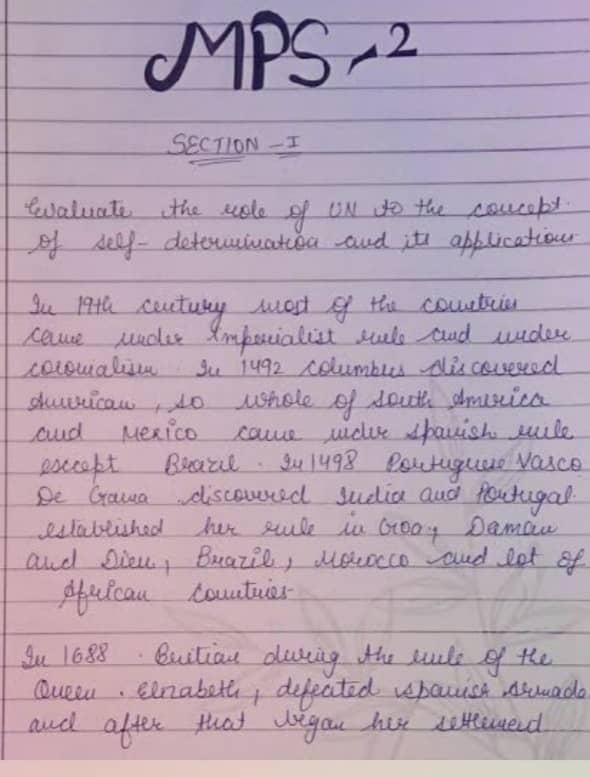 MPS-2
SECTION - I
Evaluate the role of UN to the concept
of self-determination and its applications
In 19th century most of the countries
came under Imperialist rule and under
colonialism. In 1492 columbus discovered
American, so whole of South America
and Mexico came under spanish rule
except Brazil. In 1498 Portuguese Vasco
De Gama discovered India and Portugal
established her rule in Goa, Daman
and Dieu, Brazil, Morocco and lot of
African Countries.
In 1688. Britian during the rule of the
Queen. Elnzabeth, defeated spanish Armada
and after that began her settlement